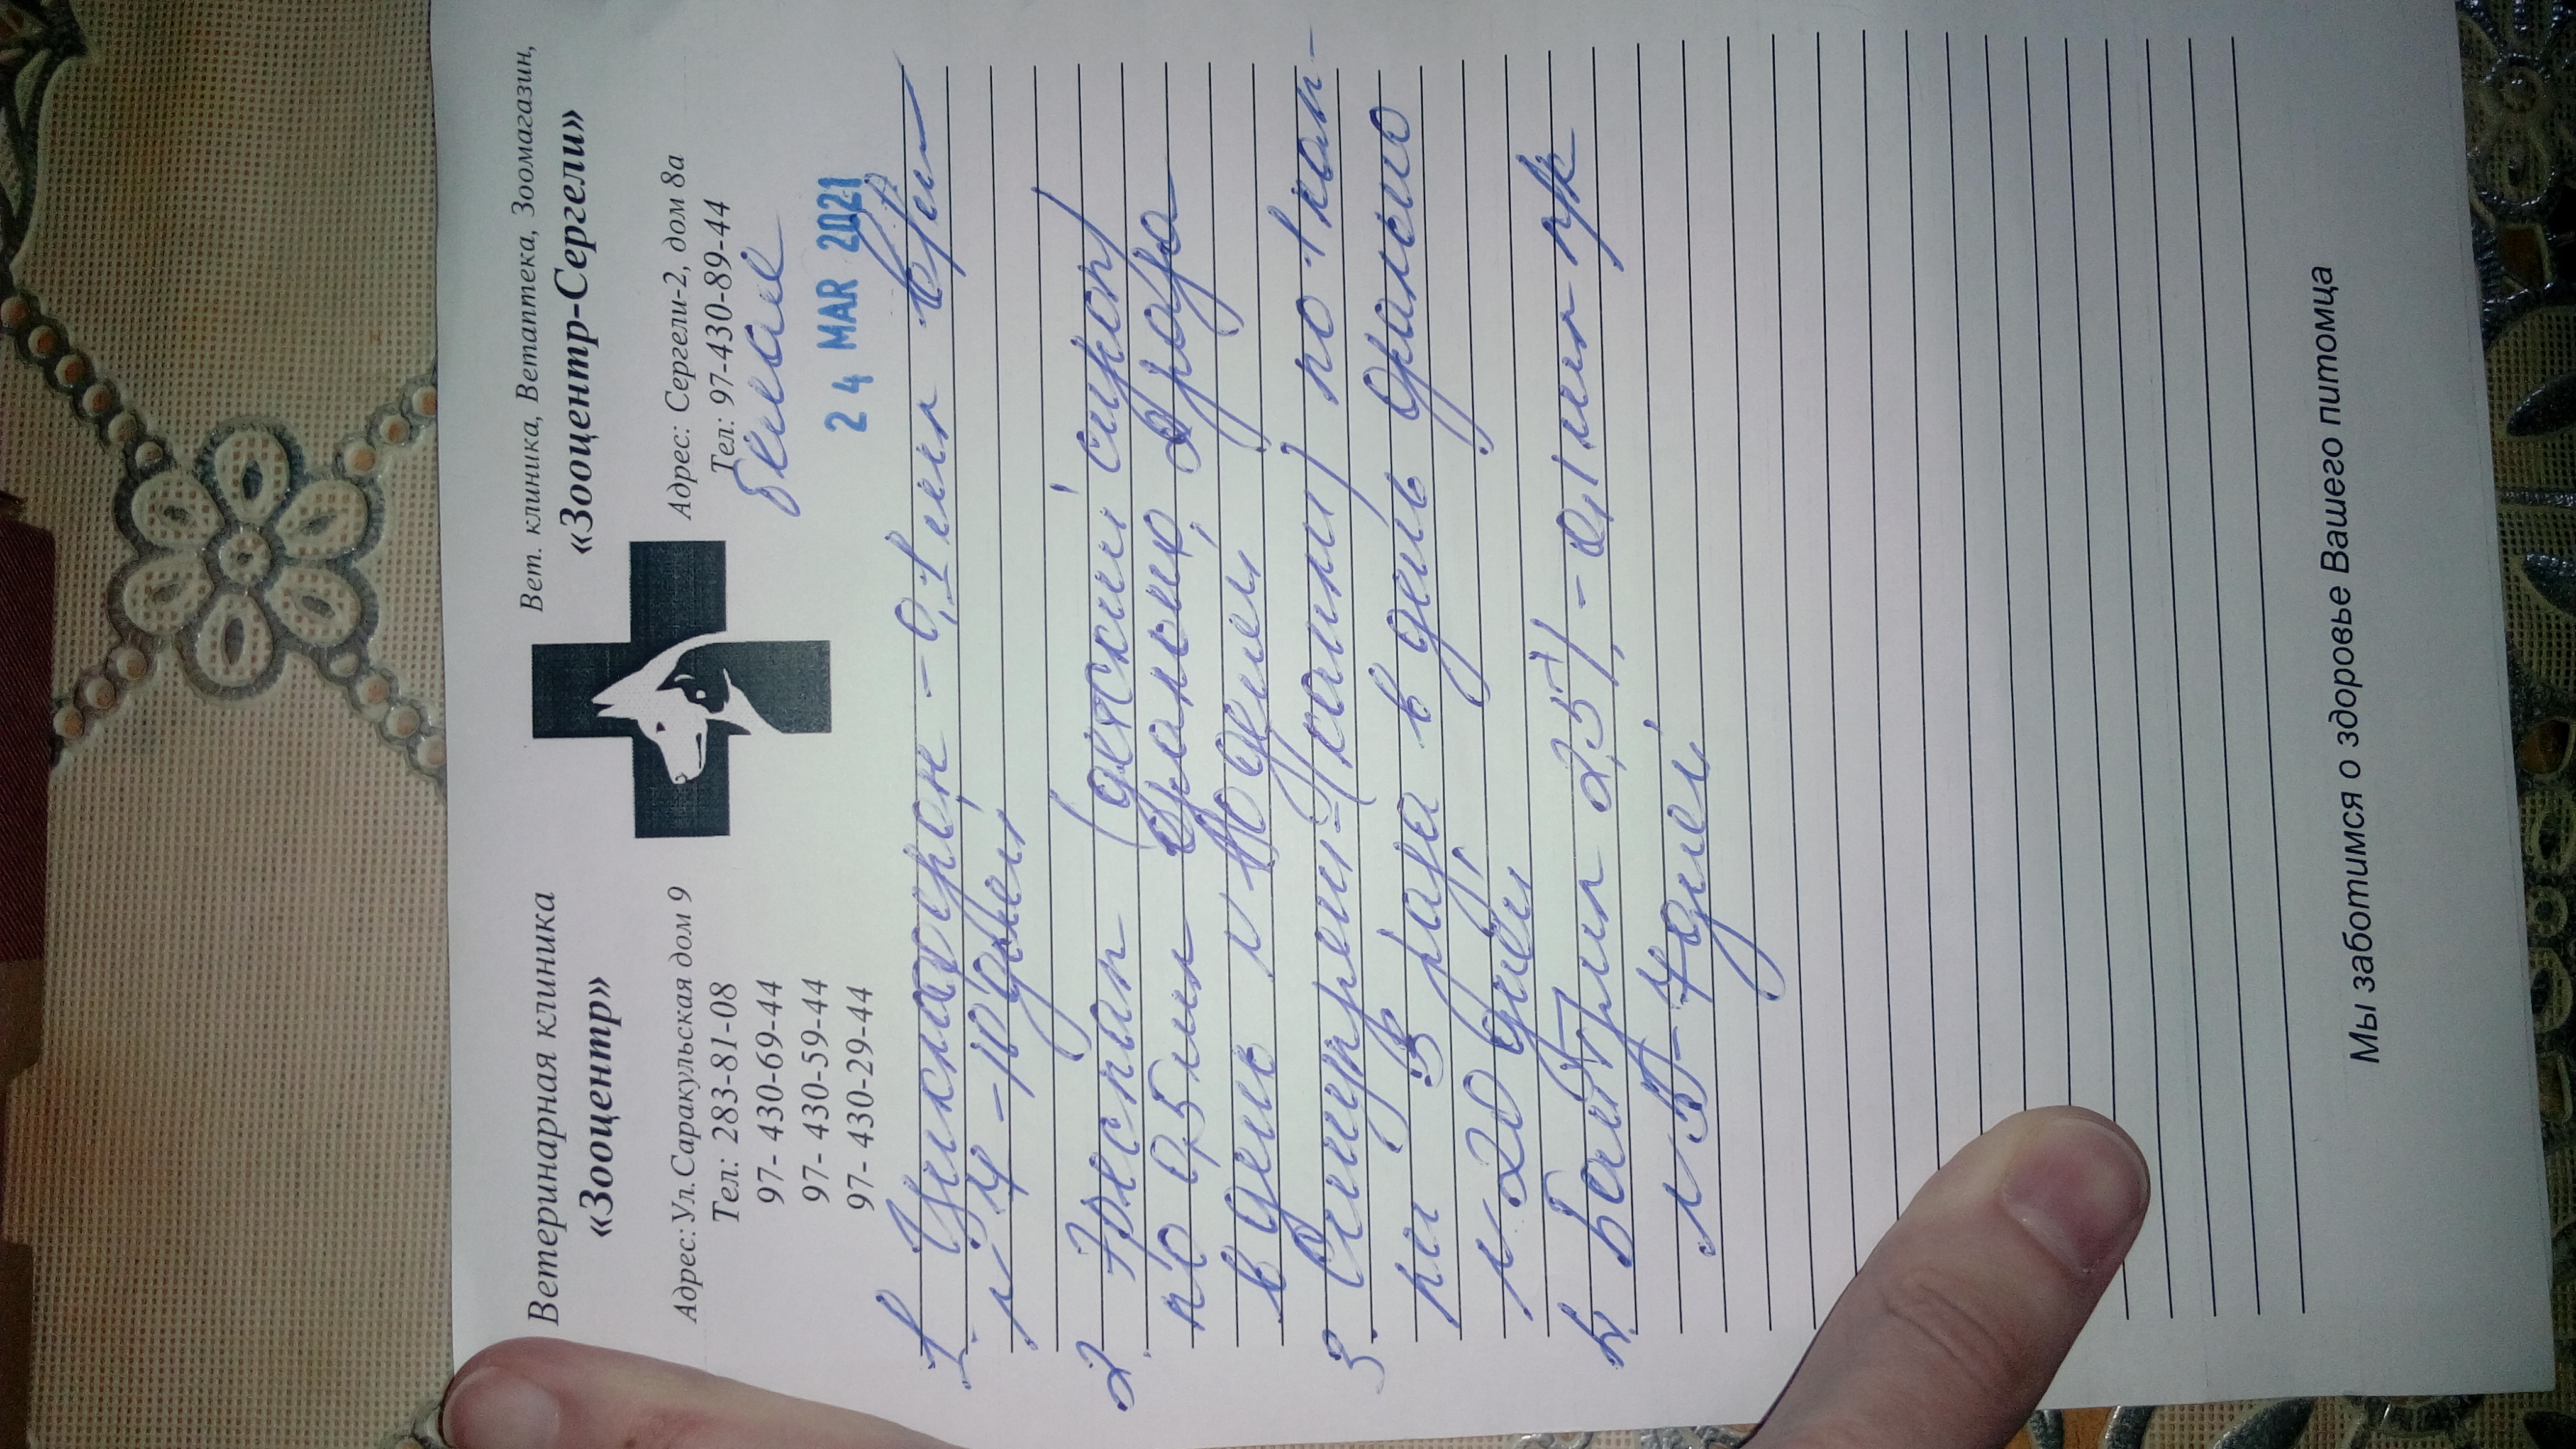 Ветеринарная клиника
«Зооцентр»
Адрес: Ул.Саракульская дом 9
Тел.: 283-81-08
97- 430-69-44
97- 430-59-44
97- 430-29-44
Вет. клиника, Ветаптека, Зоомагазин,
«Зооцентр-Сергели»
Адрес: Сергели-2, дом 8а
Тел.: 97-430-89-44
24 MAR 2021
1. Циклоферон - 0,1 мл в/м
N 4 - 10 дней
2. Эреспал (детский сироп)
по 0,5 мл орально 2 раза
в день N 10 дней
3. Синупрет (капли) по 1 кап-
ли 3 раза в день орально
N 20 дней
4. Байтрил 2,5% - 0,1 мл п/к
N 5-7 дней
Мы заботимся о здоровье Вашего питомца